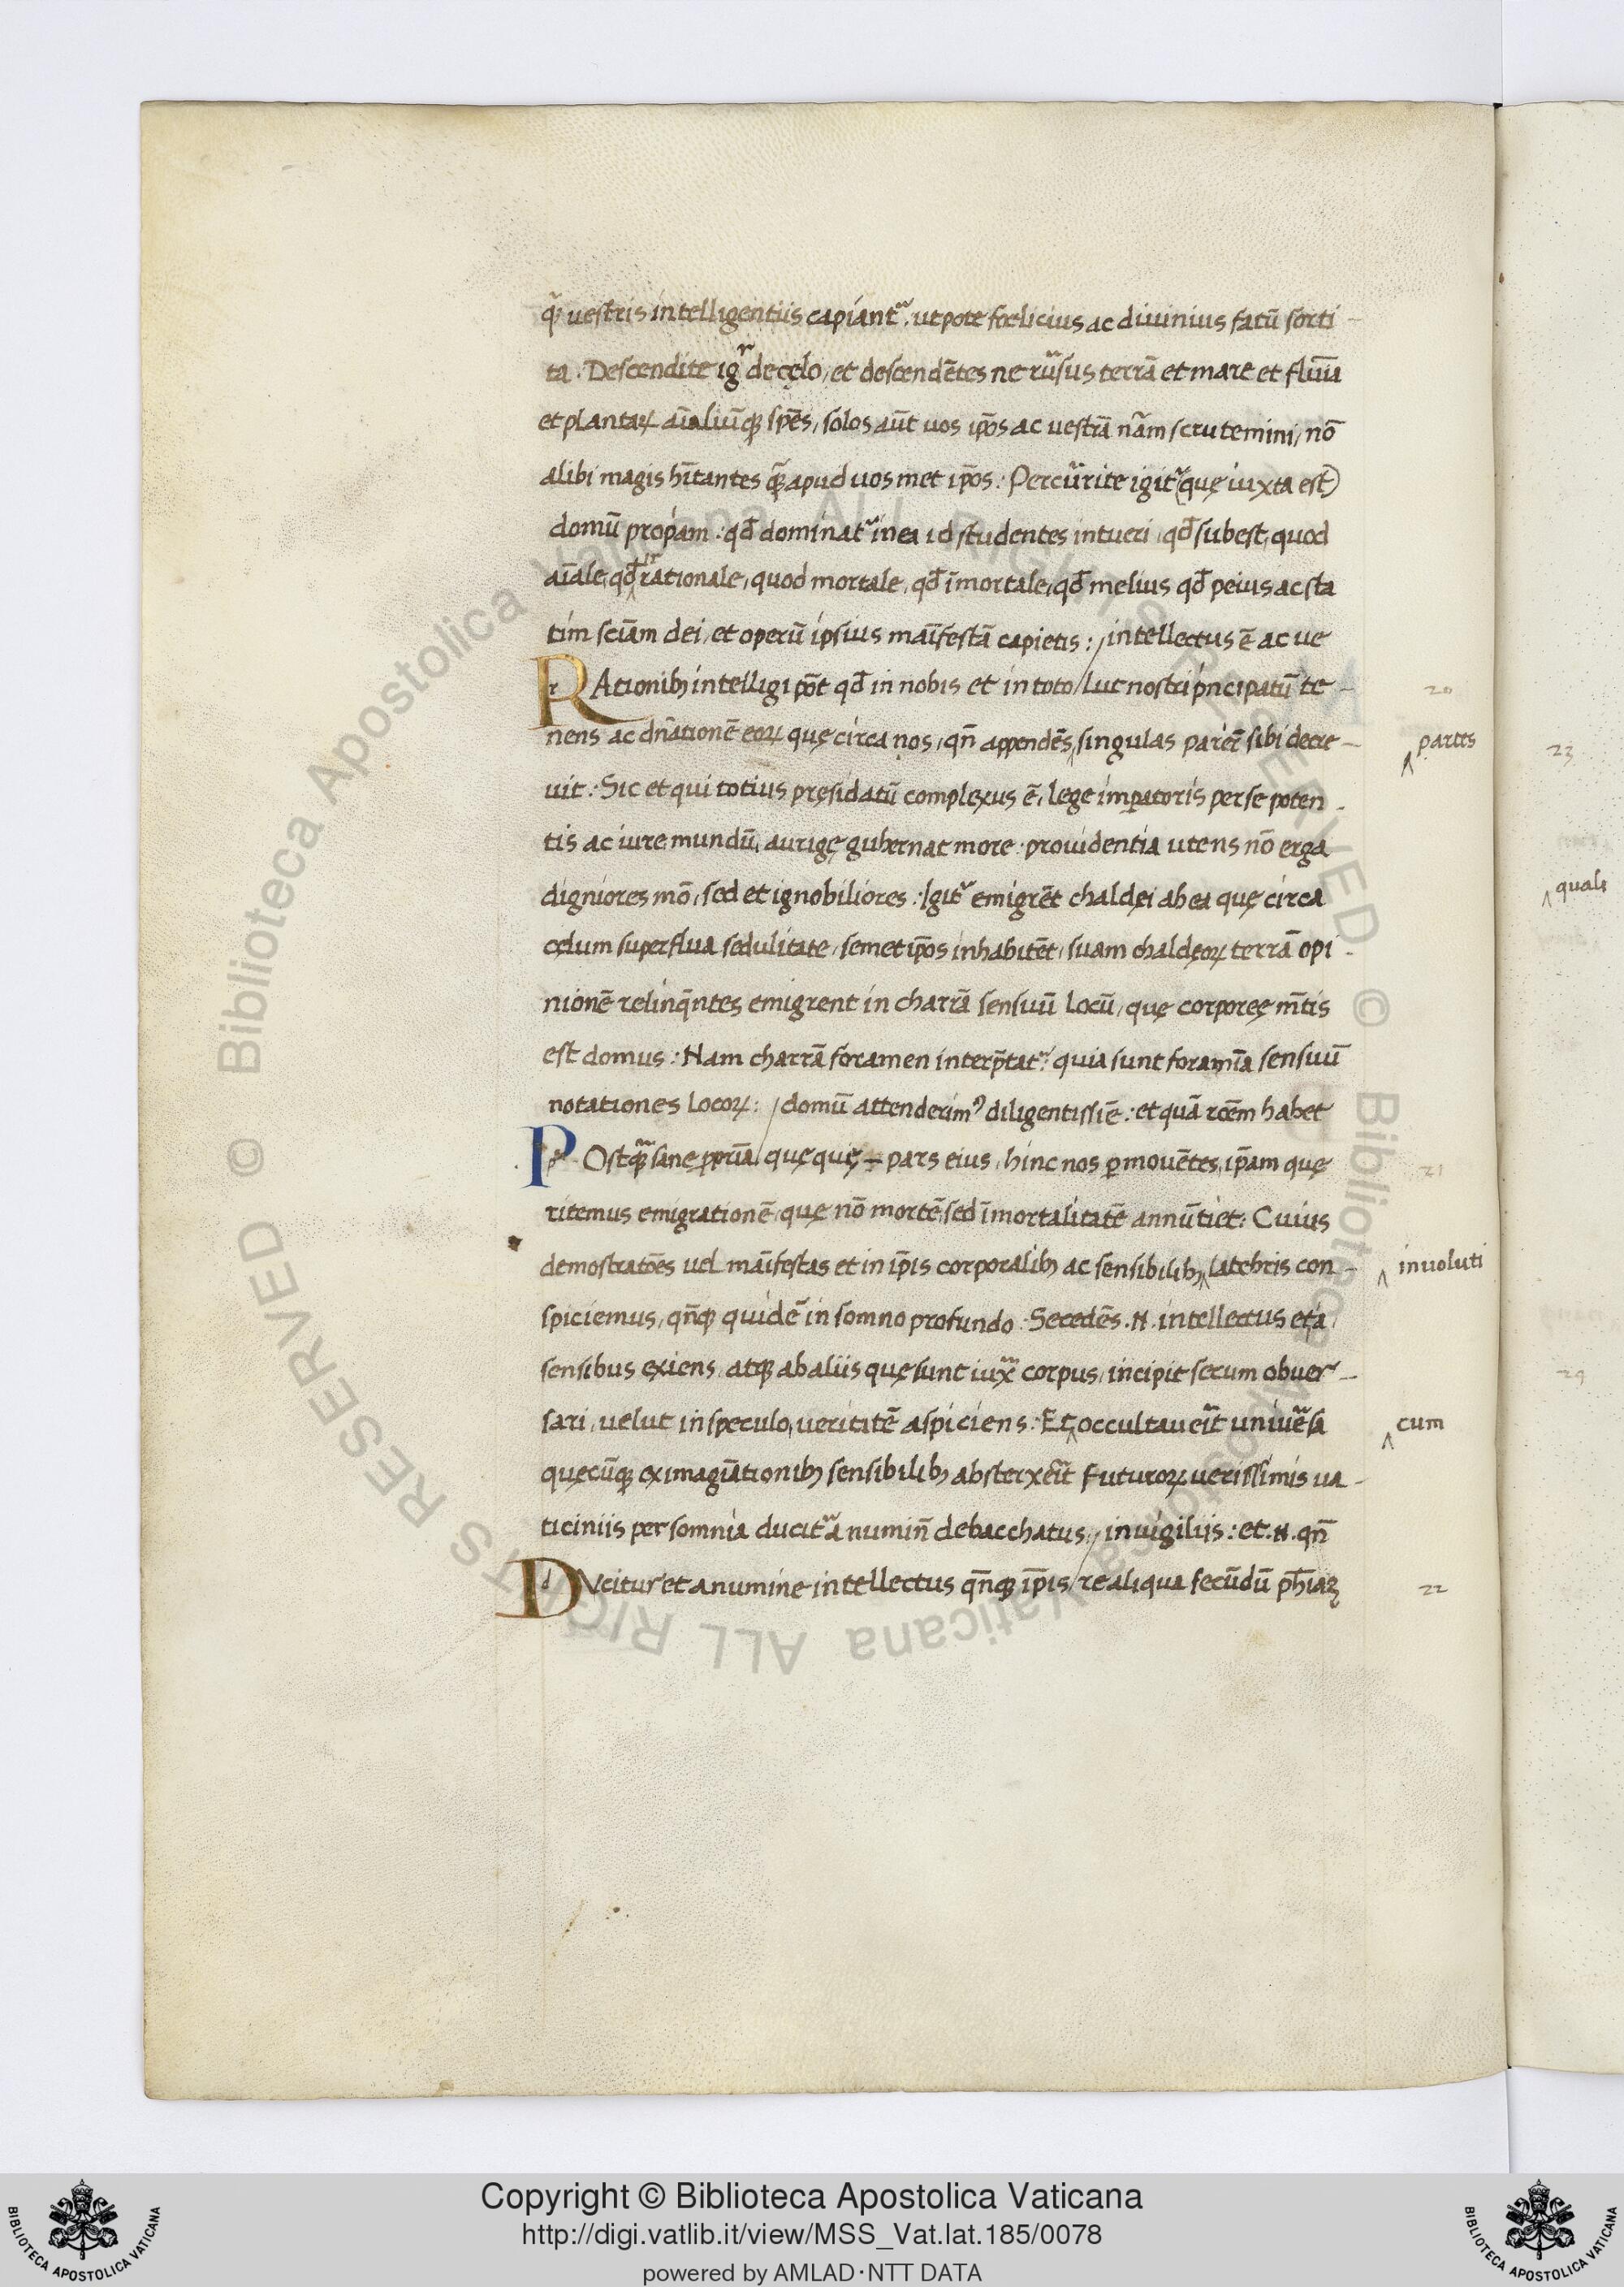 q̃ꝫ uestris intelligentiis capiantᷣ. utpote foelicius ac diuinius fatū sorti-
ta. Descendite igr̃ de cęlo, et descendẽtes ne rũsus terrã et mare et fluuia
et plantaꝝ aĩaliũqꝫ spẽs, solos aũt uos ip̃os ac uestrã nãm scrutemini, nõ
alibi magis hĩtantes q̃ꝫ apud uosmet ip̃os: Percũrite igitᷣ (quę iuxta est)
domũ prop̃am: qd̃ dominatᷣ in ea id studentes intueri, qd̃ subest, quod
aĩale, qd̃ ‸ir rationale, quod mortale, qd̃ ĩmortale, qd̃ melius qd̃ peius ac sta
tim sciãm dei, et operũ ipsius maĩfestã capietis: / intellectus ẽ ac ue
RAtionibꝫ intelligi põt qd̃ in nobis et in toto / lut nostri pͥncipatũ te- 20
nens ac dñationẽ eoꝝ quę circa nos, qñ appendẽs ‸ singulas parẽr sibi decre- ‸ partes
uit: Sic et qui totius pręsidatũ complexus ẽ, lege imperatoris per se poten-
tis ac iure mundũ, aurigę gubernat more: prouidentia utens nõ erga
digniores mõ, sed et ignobiliores: Igitᷣ emigrẽt chaldęi ab ea quę circa
cęlum superflua sedulitate, semet ip̃os inhabitẽt, suam chaldęoꝝ terrã opi-
nionẽ relinq̃ntes emigrent in charrã sensuũ locũ, quę corporeę m̃tis
est domus: Nam charrã foramen interp̃tatᷣ: quia sunt foramĩa sensuũ
notationes locoꝝ: / domũ attenderimꝰ diligentissiẽ: et quã rõem habet
POstq̃ꝫ sane ꝓpriã / quęquę — pars eius, hinc nos ꝑmouẽtes, ip̃am quę 21
ritemus emigrationẽ, quę nõ mortẽ, sed ĩmortalitatẽ annũtiet: Cuius
demostratões uel maĩfestas et in ip̃is corporalibꝫ ac sensibilibꝫ ‸ latebris con- ‸ involuti
spiciemus, qñqꝫ quidẽ in somno profundo: Secedẽs .N. intellectus et a
sensibus exiens, atqꝫ ab aliis quę sunt iuxͣ corpus, incipit secum obuer-
sari, uelut in speculo, ueritatẽ aspiciens: Et ‸ occultauerit uniũesa ‸ cum
quęcũqꝫ ex imagĩationibꝫ sensibilibꝫ absterxerit futuroꝝ uerissimis ua-
ticiniis per somnia ducitᷣ a numiñ debacchatus: / in uigiliis: et .N. qñ
DVcitur et a numine intellectus qñqꝫ ip̃is / re aliqua secũdũ ph̃iaꝝ 22
23
‸ quali
Copyright © Biblioteca Apostolica Vaticana
http://digi.vatlib.it/view/MSS_Vat.lat.185/0078
powered by AMLAD·NTT DATA
BIBLIOTECA APOSTOLICA VATICANA
BIBLIOTECA APOSTOLICA VATICANA
© Biblioteca Apostolica Vaticana ALL RIGHTS RESERVED © Biblioteca Apostolica Vaticana ALL RIGHTS RESERVED